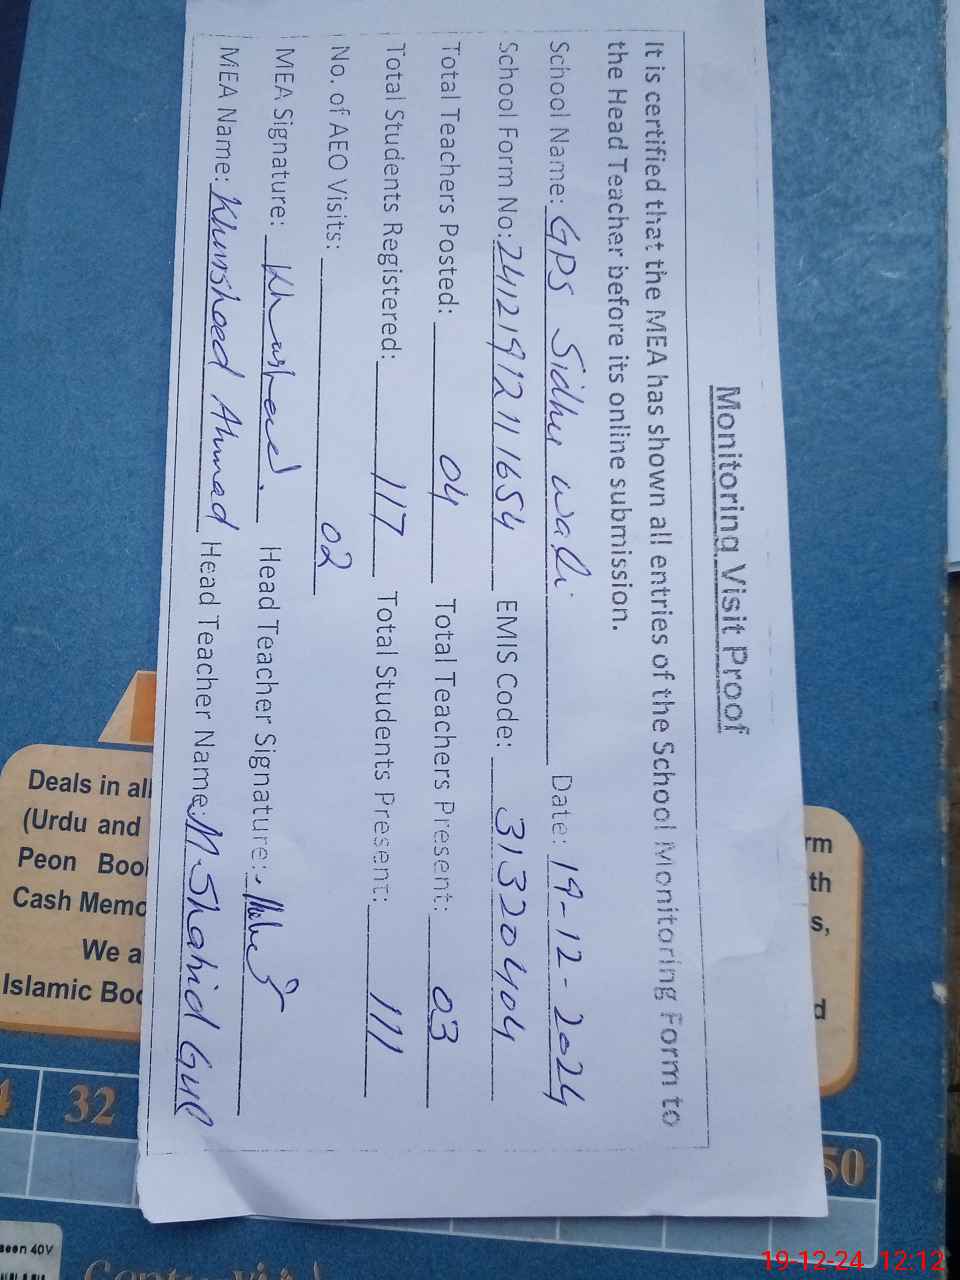 Monitoring Visit Proof
It is certified that the MEA has shown all entries of the School Monitoring Form to
the Head Teacher before its online submission.
School Name: GPS Sidhu wali Date: 19-12-2024
School Form No: 241219121111654 EMIS Code: 31320404
Total Teachers Posted: 04 Total Teachers Present: 03
Total Students Registered: 117 Total Students Present: 111
No. of AEO Visits: 02
MEA Signature: Khursheed. Head Teacher Signature:
MEA Name: Khursheed Ahmad Head Teacher Name: M. Shahid Gul
Deals in all
(Urdu and
Peon Boo
Cash Memo
We a
Islamic Boo
rm
th
s,
d
4 32
50
een 40V
19-12-24 12:12